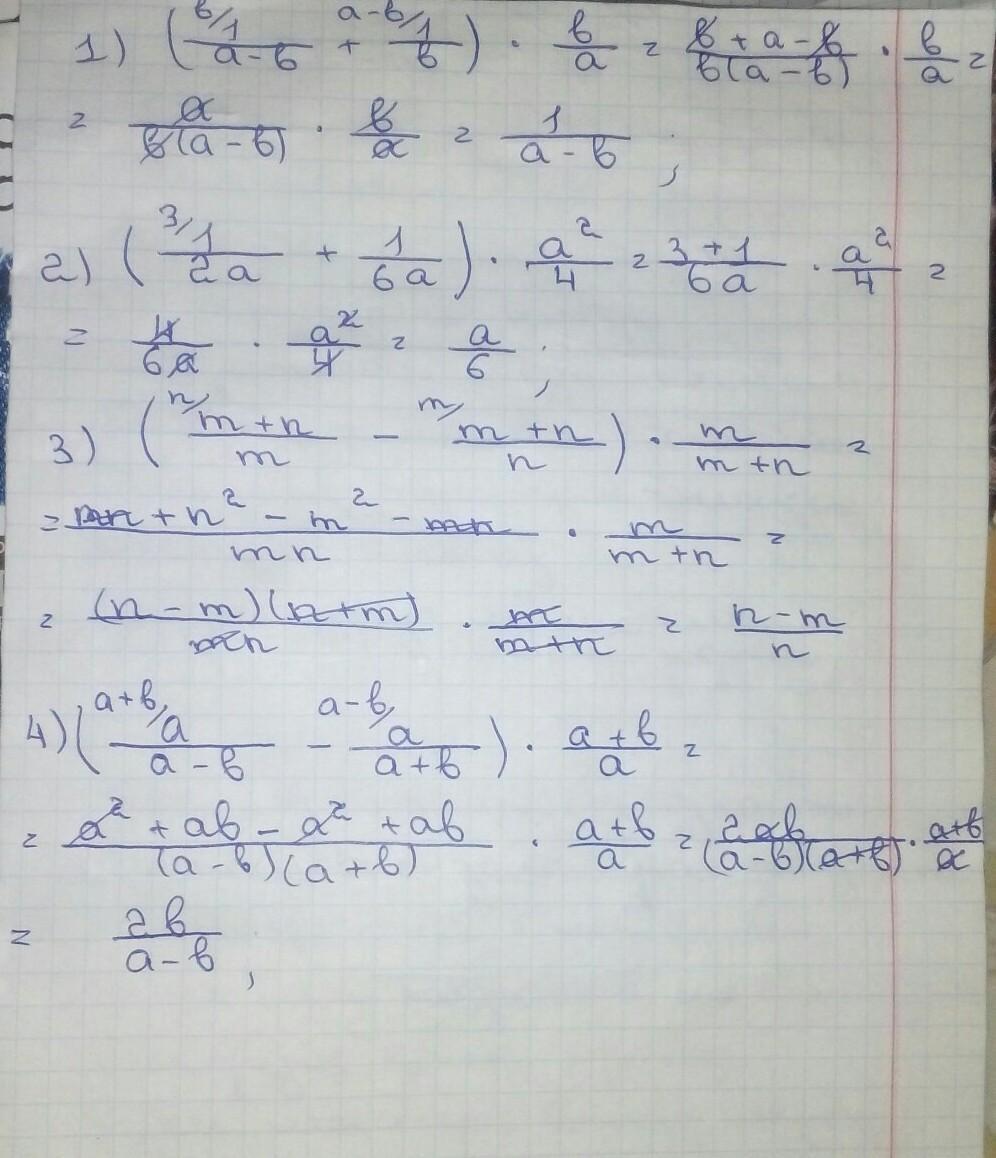 1) (ᵇ/1/(a-b) + ᵃ⁻ᵇ/1/b) · b/a = (b+a-b)/(b(a-b)) · b/a =
= a/(b(a-b)) · b/a = 1/(a-b) ;
2) (³/1/(2a) + 1/(6a)) · a²/4 = (3+1)/(6a) · a²/4 =
= 4/(6a) · a²/4 = a/6 ;
3) (ⁿ/(m+n)/m - ᵐ/(m+n)/n) · m/(m+n) =
= (mn+n²-m²-mn)/(mn) · m/(m+n) =
= ((n-m)(n+m))/(mn) · m/(m+n) = (n-m)/n
4) (ᵃ⁺ᵇ/a/(a-b) - ᵃ⁻ᵇ/a/(a+b)) · (a+b)/a =
= (a²+ab-a²+ab)/((a-b)(a+b)) · (a+b)/a = 2ab/((a-b)(a+b)) · (a+b)/a
= 2b/(a-b) ,